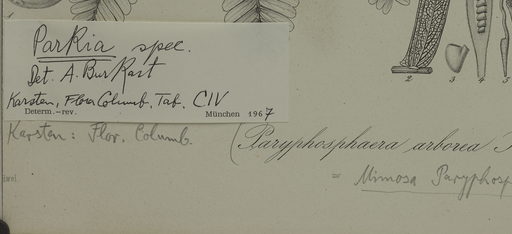 ParKia spec.
Det. A. BurKart
Karsten, Flora Columb. Tab. CIV
Determ.–rev. München 1967
Karsten: Flor. Columb.
(Paryphosphaera arborea
= Mimosa Paryphosp
2 3 4 5